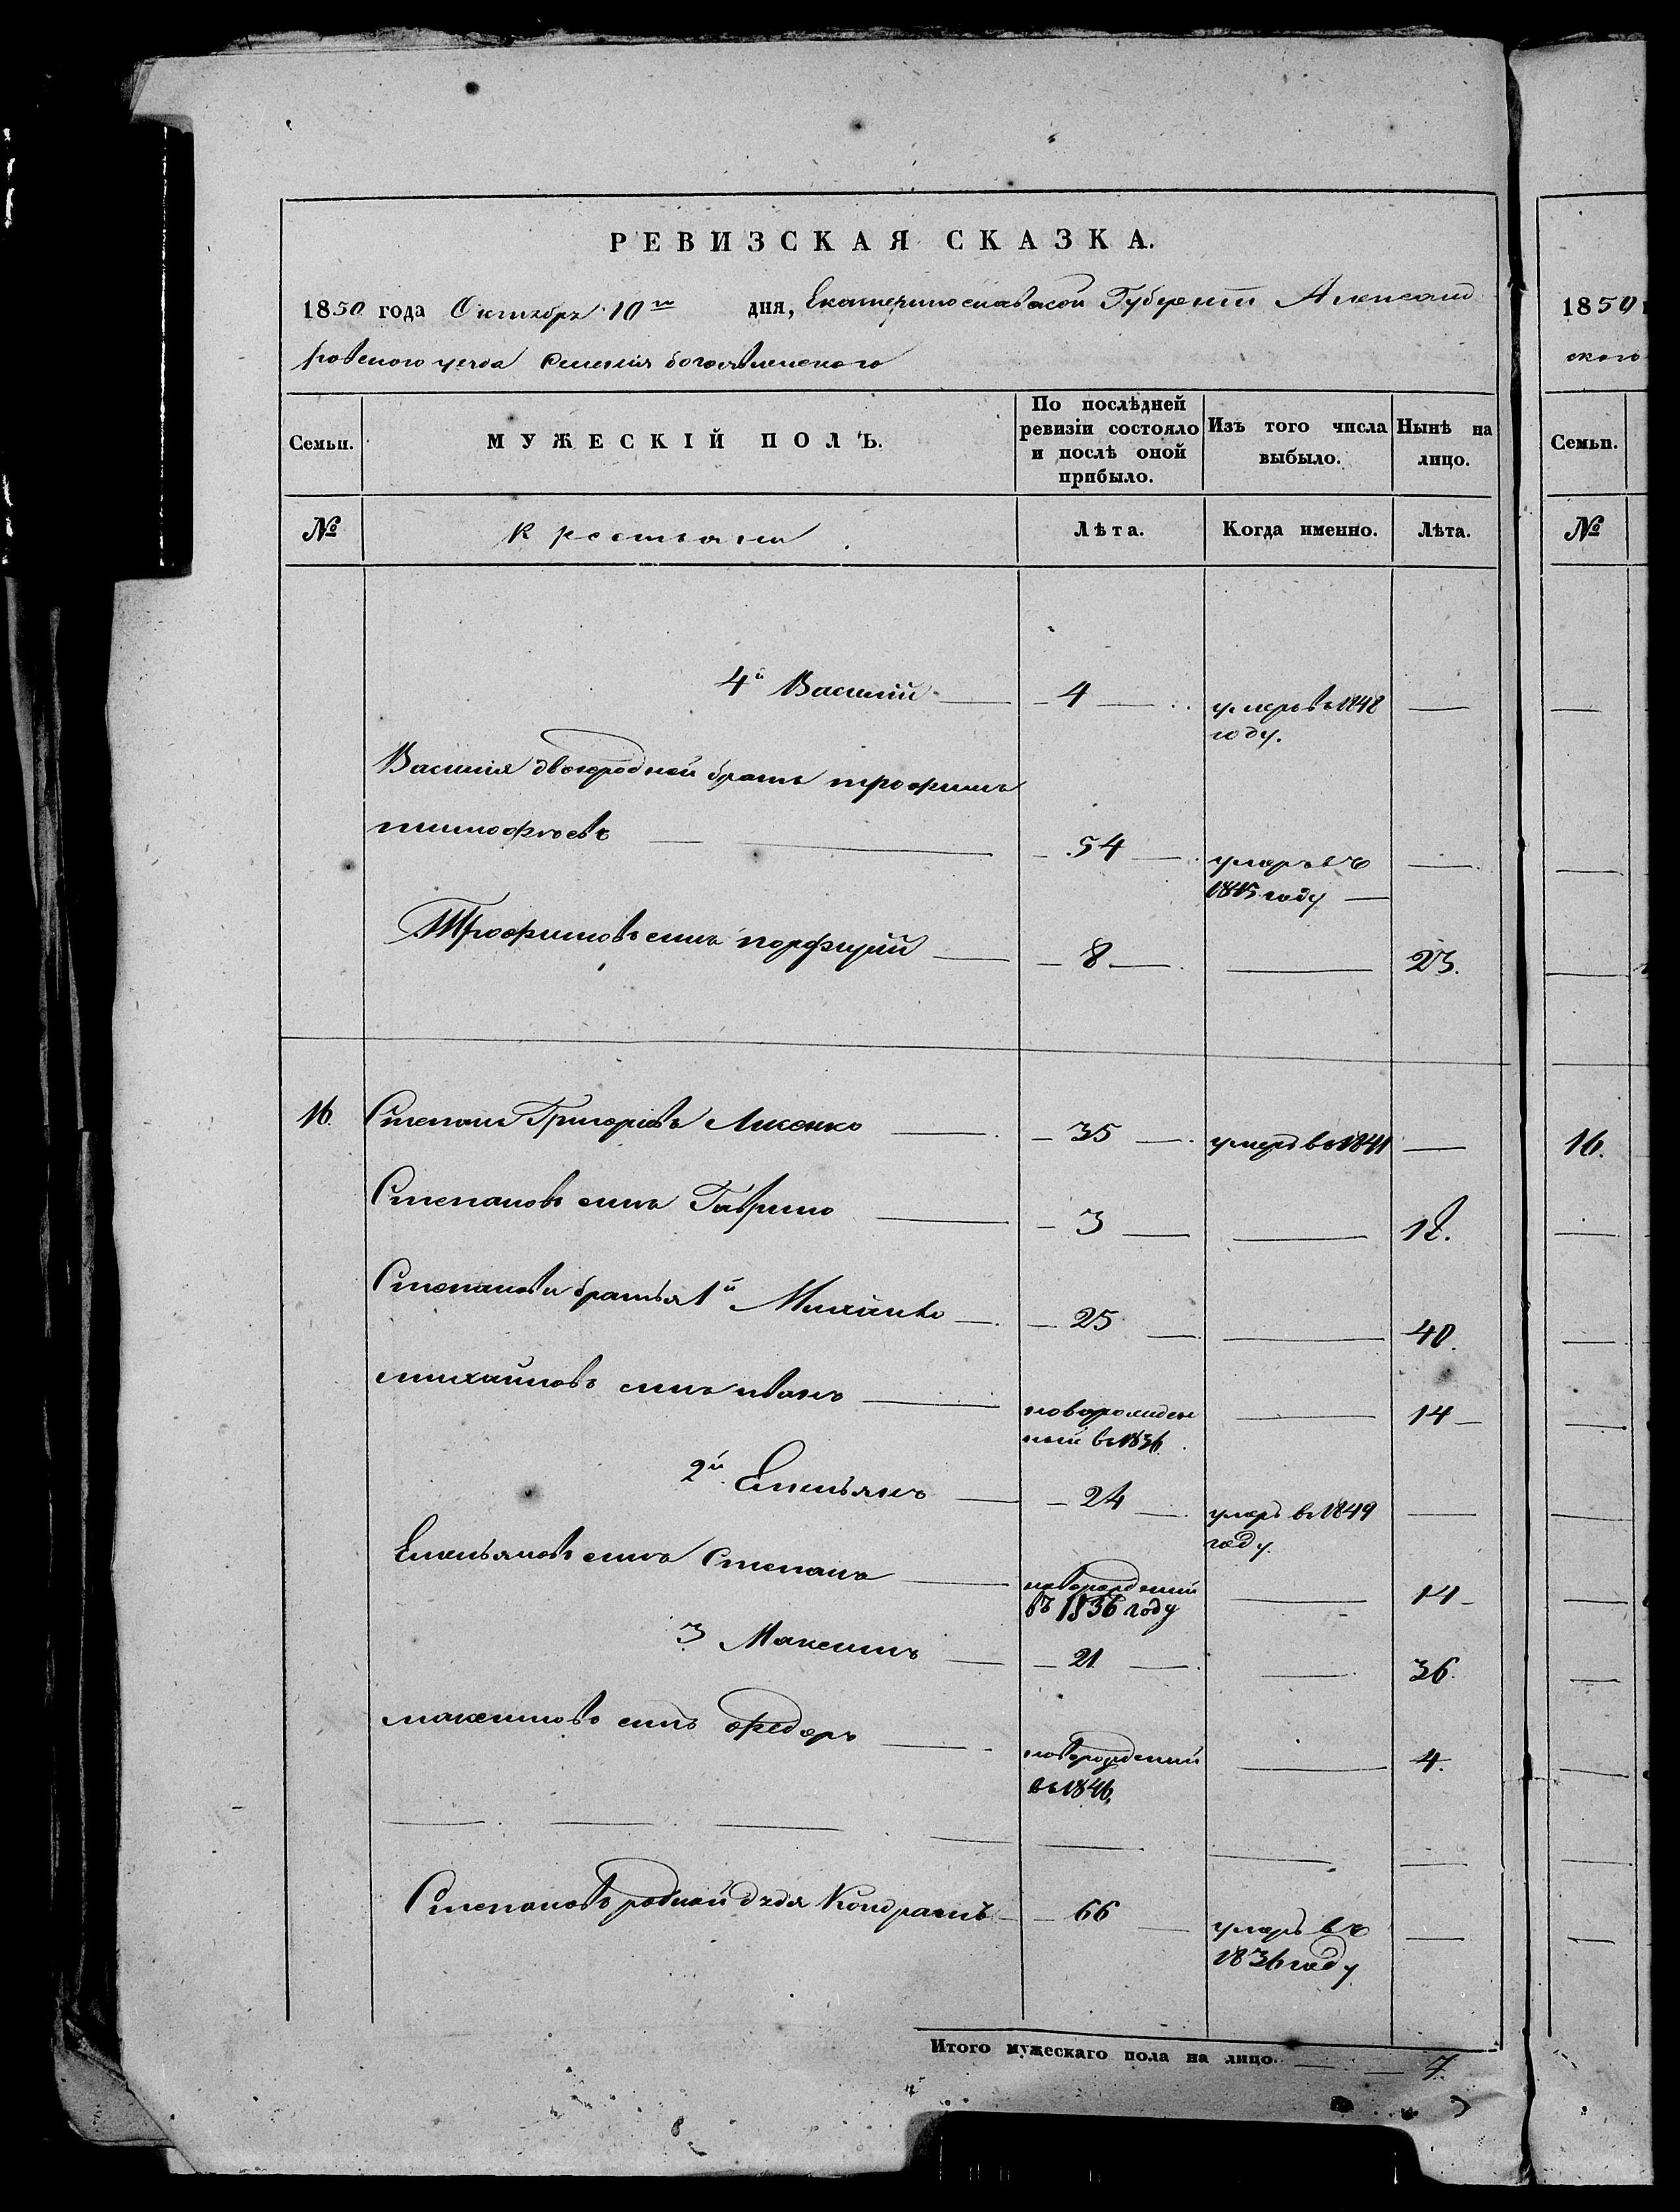 РЕВИЗСКАЯ СКАЗКА.
1850 года Октября 10го дня, Екатеринославской Губернии Александ
ровского уезда селения богоявленского
Семьи.
МУЖЕСКІЙ ПОЛЪ.
По послѣдней ревизіи состояло и послѣ оной прибыло.
Изъ того числа выбыло.
Нынѣ на лицо.
№ Крестьяни Лѣта. Когда именно. Лѣта.
4й Василий — 4 — умеръ въ 1848
году.
Василия двоюродной братъ трофимъ
тимофѣевъ — 54 — умеръ въ —
1845 году —
Трофимовъ синъ порфирий — 8 — — 23.
16. Степанъ Григориевъ Лисенко — 35 — умеръ въ 1841 —
Степановъ синъ Гаврило — 3 — — 18.
Степанови братья 1й Михаило — 25 — — 40.
михайловъ синъ иванъ — новорожден
ный въ 1836 — 14 —
2й Емельянъ — 24 — умеръ въ 1849 —
году.
Емельяновъ синъ Степанъ — новорожденый
въ 1836 году — 14 —
3 Максимъ — 21 — — 36.
максимовъ синъ федоръ — новорожденый — 4.
въ 1846.
Степановъ родной дядя Кондратъ — 66 — умеръ въ —
1836 году
Итого мужескаго пола на лицо. — 7.
1850
ского
Семьи.
№
16.